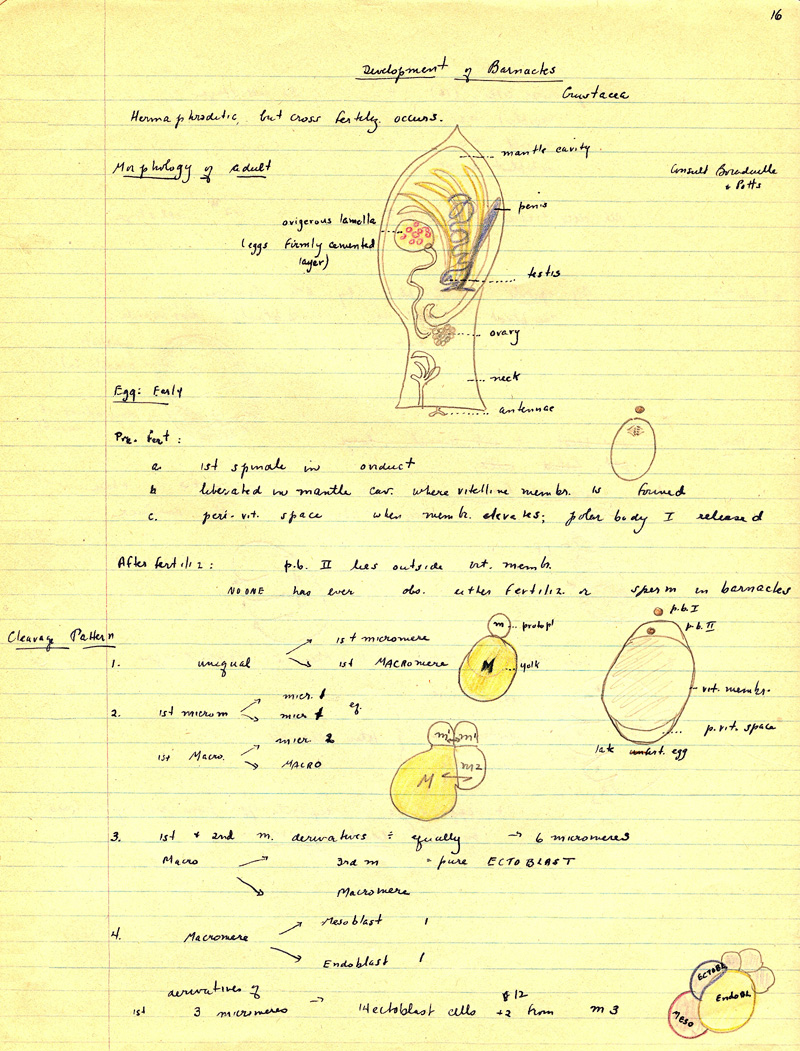 16
Development of Barnacles
Crustacea
Hermaphroditic, but cross fertiliz. occurs.
Morphology of adult
mantle cavity
Consult Boradaille
+ Potts
penis
ovigerous lamella
(eggs firmly cemented
layer)
testis
ovary
neck
antennae
Egg: Early
Pre. Fert:
a. 1st spindle in oviduct
b liberated in mantle cav. where vitelline membr. is formed
c. peri-vit. space when memb. elevates; polar body I released
After fertiliz: p.b. II lies outside vit. memb.
NO ONE has ever obs. either fertiliz. or sperm in barnacles
p.b. I
p.b. II
Cleavage Pattern
m protopl
M yolk
1. unequal
1st micromere
1st MACROmere
vit. membr.
p.vit. space
late unfert. egg
2. 1st microm
micr. 1
micr 1
eq.
1st Macro.
micr 2
MACRO
m1 m1
m2
M
3. 1st + 2nd m. derivatives ÷ equally → 6 micromeres
Macro
3rd m = pure ECTOBLAST
Macromere
4. Macromere
Mesoblast 1
Endoblast 1
derivatives of
1st 3 micromeres → 14 ectoblast cells 12 +2 from m3
ECTOBL
EndoBL
MESO